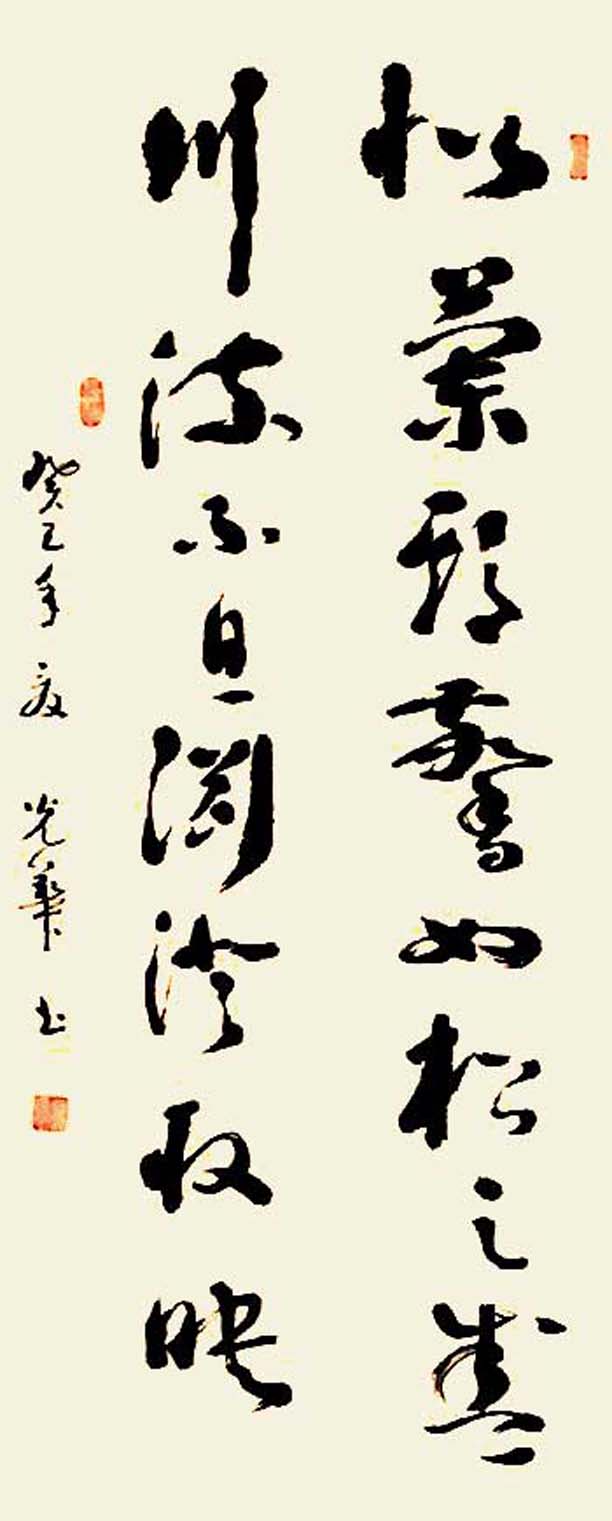 似蘭斯馨如松之盛
川流不息渊澄取映
癸巳年夏 光華书